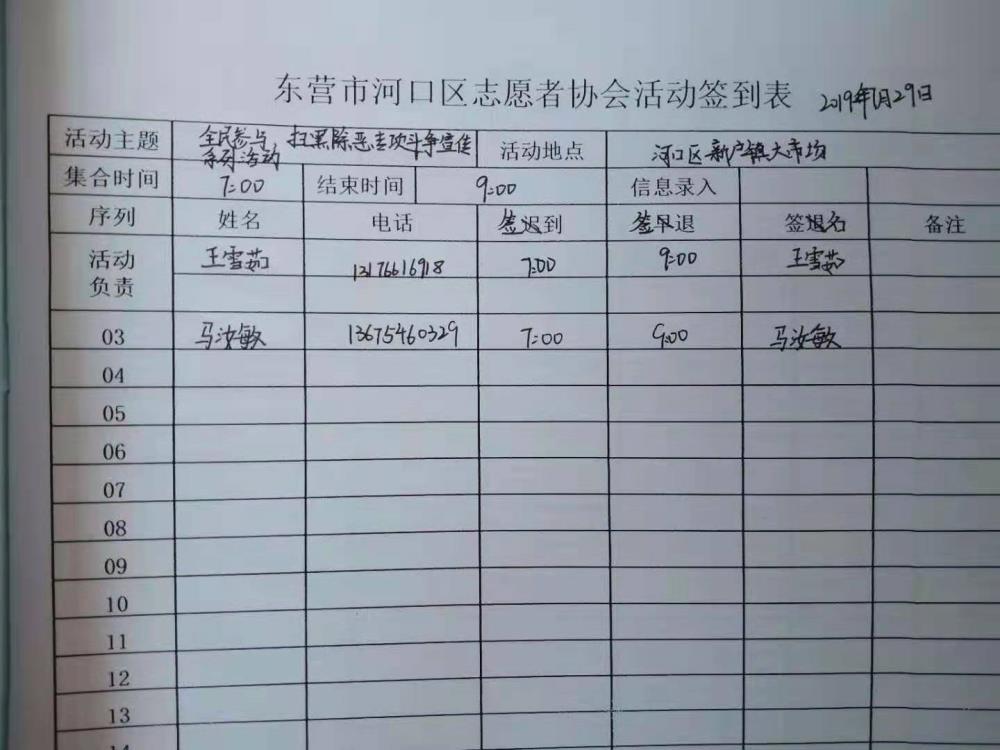 东营市河口区志愿者协会活动签到表 2019年1月29日
活动主题 全民参与、扫黑除恶专项斗争宣传系列活动 活动地点 河口区新户镇大市场
集合时间 7:00 结束时间 9:00 信息录入
序列 姓名 电话 签到 签退 签名 备注
活动负责 王雪茹 13176616918 7:00 9:00 王雪茹
03 马汝敏 13675460329 7:00 9:00 马汝敏
04
05
06
07
08
09
10
11
12
13
14